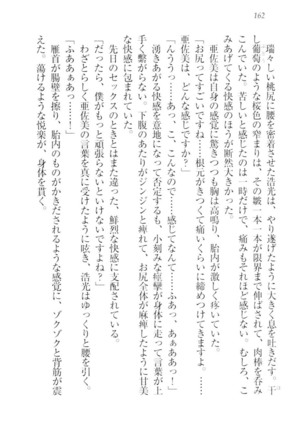 162
瑞々しい桃尻に腰を密着させた浩光は、やり遂げたように大きく息を吐きだす。干
し葡萄のような桜色の窄まりは、その皺一本一本が限界まで伸ばされて、肉棒を呑み
こんでいた。苦しいと感じたのは一時だけで、痛みもそれほど感じない。むしろ、こ
みあげてくる快感のほうが断然大きかった。
亜佐美は自身の感覚に驚きつつも胸は高鳴り、胎内が激しく疼いていた。
「お尻ってすごいですね……根元がきつくて痛いくらいに締めつけてきますよ。
亜佐美は、どんな感じですか？」
「んううっ……こ、こんなので……感じてなんて……ふあっ、あぁああっ！」
湧きあがる快感を意地になって否定するも、小刻みな痙攣が身体に走って言葉が上
手く繋がらない。下腹のあたりがジンジンと痺れて、お尻全体が麻痺したように甘美
な快感に包まれていた。
先日のセックスのときとはまた違った、鮮烈な快感に支配されている。
「だったら、僕がもっと頑張らないといけないですよね？」
わざとらしく、亜佐美の言葉を真に受けたように呟き、浩光はゆっくりと腰を引く。
「ふああぁあっ……！」
雁首が腸壁を擦り、胎内のものがかきだされるような感覚に、ゾクゾクと背筋が震
えた。蕩けるような悦楽が、身体を貫く。